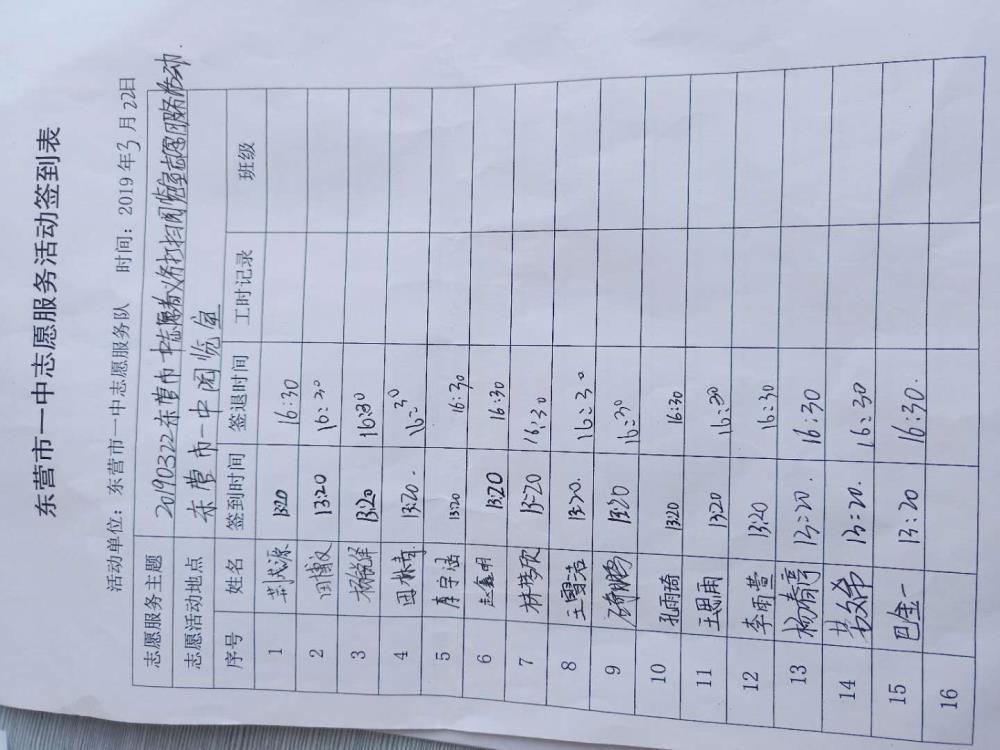 东营市一中志愿服务活动签到表
活动单位：东营市一中志愿服务队 时间：2019年3月22日
志愿服务主题 20190322东营市一中志愿者义务打扫阅览室志愿服务活动.
志愿活动地点 东营市一中阅览室
序号 姓名 签到时间 签退时间 工时记录 班级
1 13:20 16:30
2 田博文 13:20 16:30
3 13:20 16:30
4 田林奇 13:20. 16:30
5 13:20 16:30
6 赵鑫明 13:20 16:30
7 林梦欣 13:20 16:30
8 王雪洁 13:20. 16:30
9 13:20 16:30
10 孔雨琦 13:20 16:30
11 王思雨 13:20 16:30
12 李雨萱 13:20 16:30
13 13:20. 16:30
14 13:20. 16:30
15 巴金一 13:20 16:30.
16